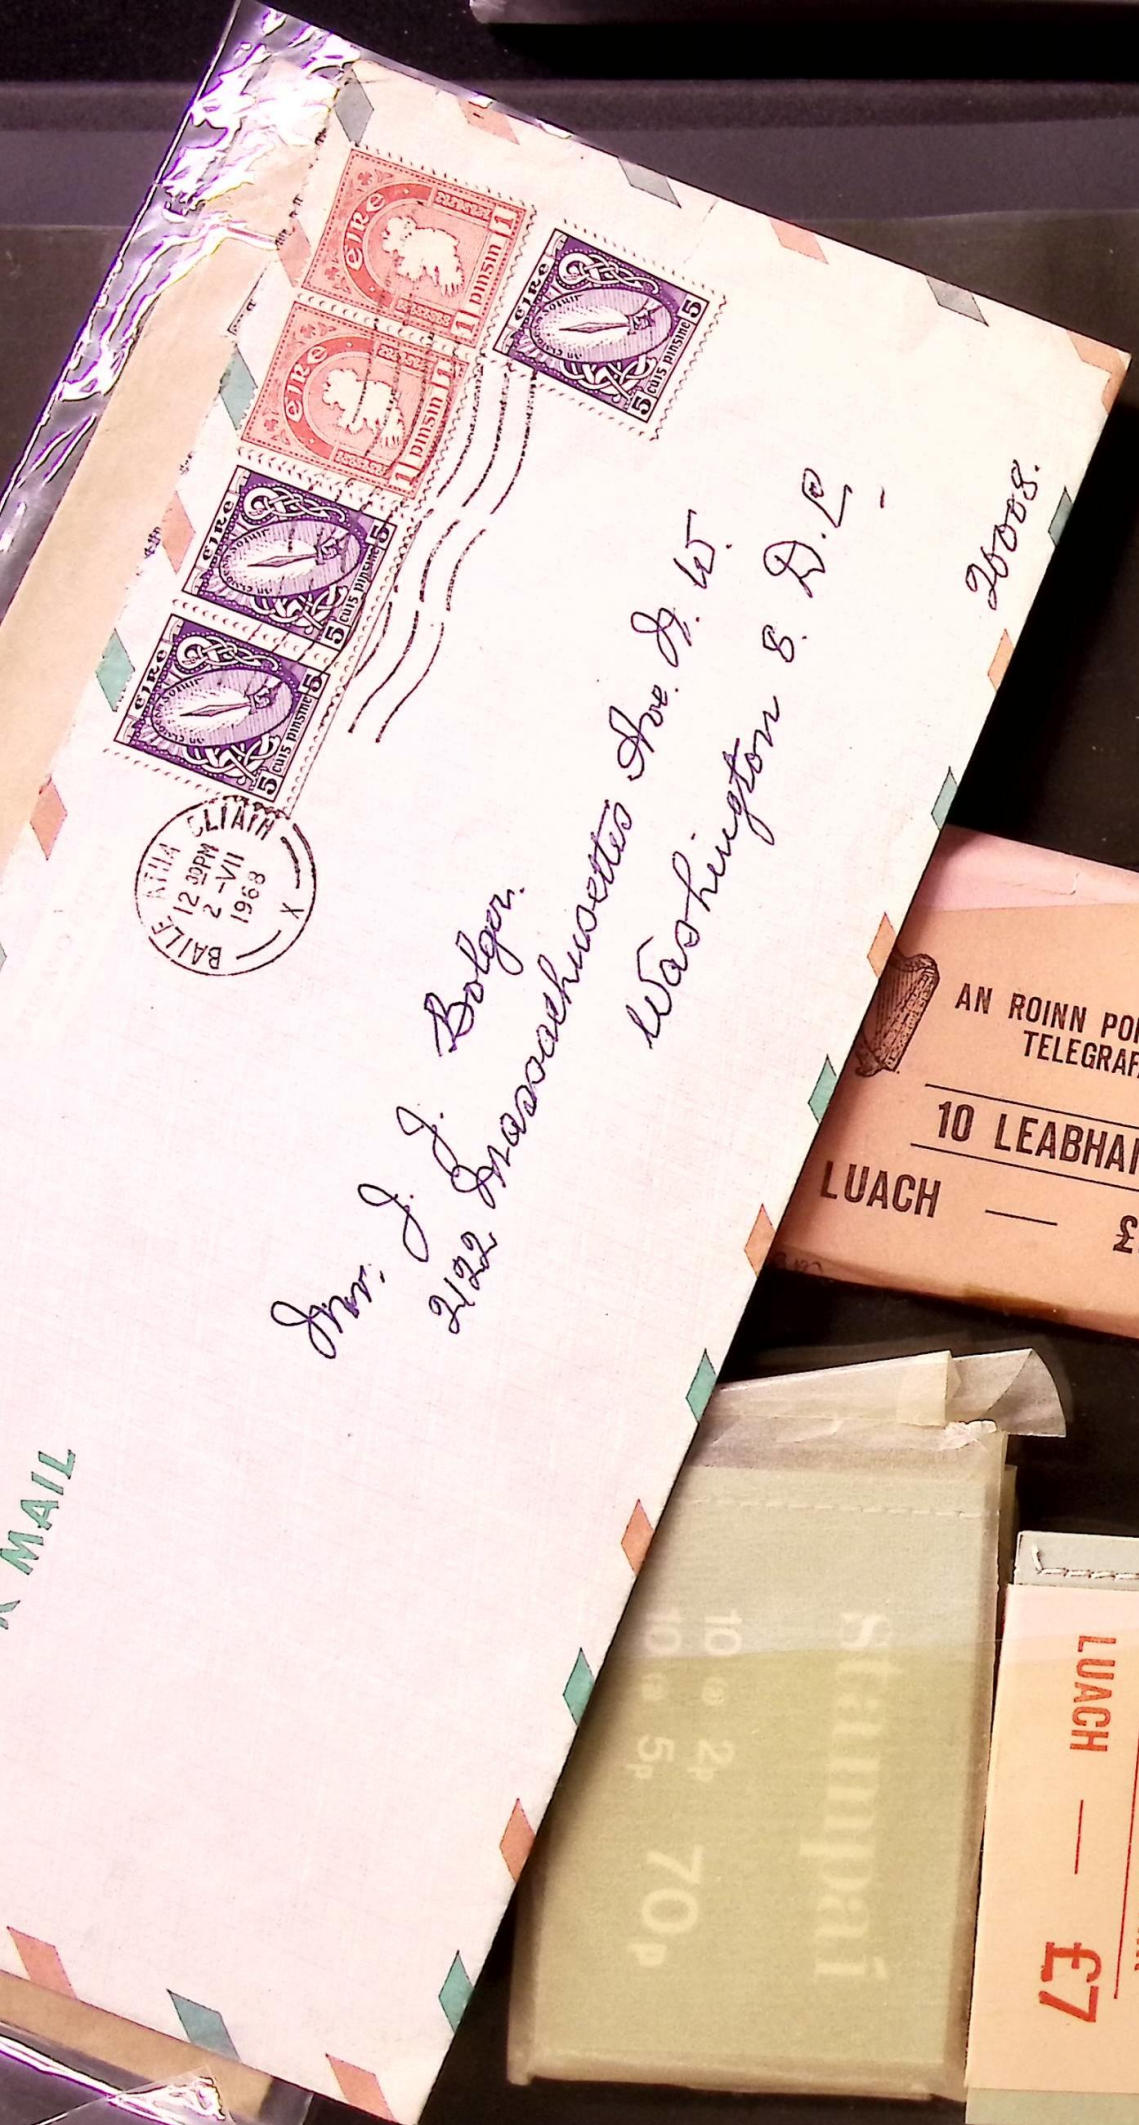 ÉIRE
1 pinsin 1
ÉIRE
1 pinsin 1
ÉIRE
5 cúis pinsine 5
ÉIRE
5 cúis pinsine 5
ÉIRE
5 cúis pinsine 5
BAILE ÁTHA CLIATH
12 30PM
2 -VII
1968
X
Mr. J. J. Bolger.
2122 Massachusetts Ave. N. W.
Washington 8. D.C
20008.
MAIL
AN ROINN
TELEGRAF
10 LEABHA
LUACH — £
Stampaí
10 @ 2p
10 @ 5p
70p
LUACH — £7